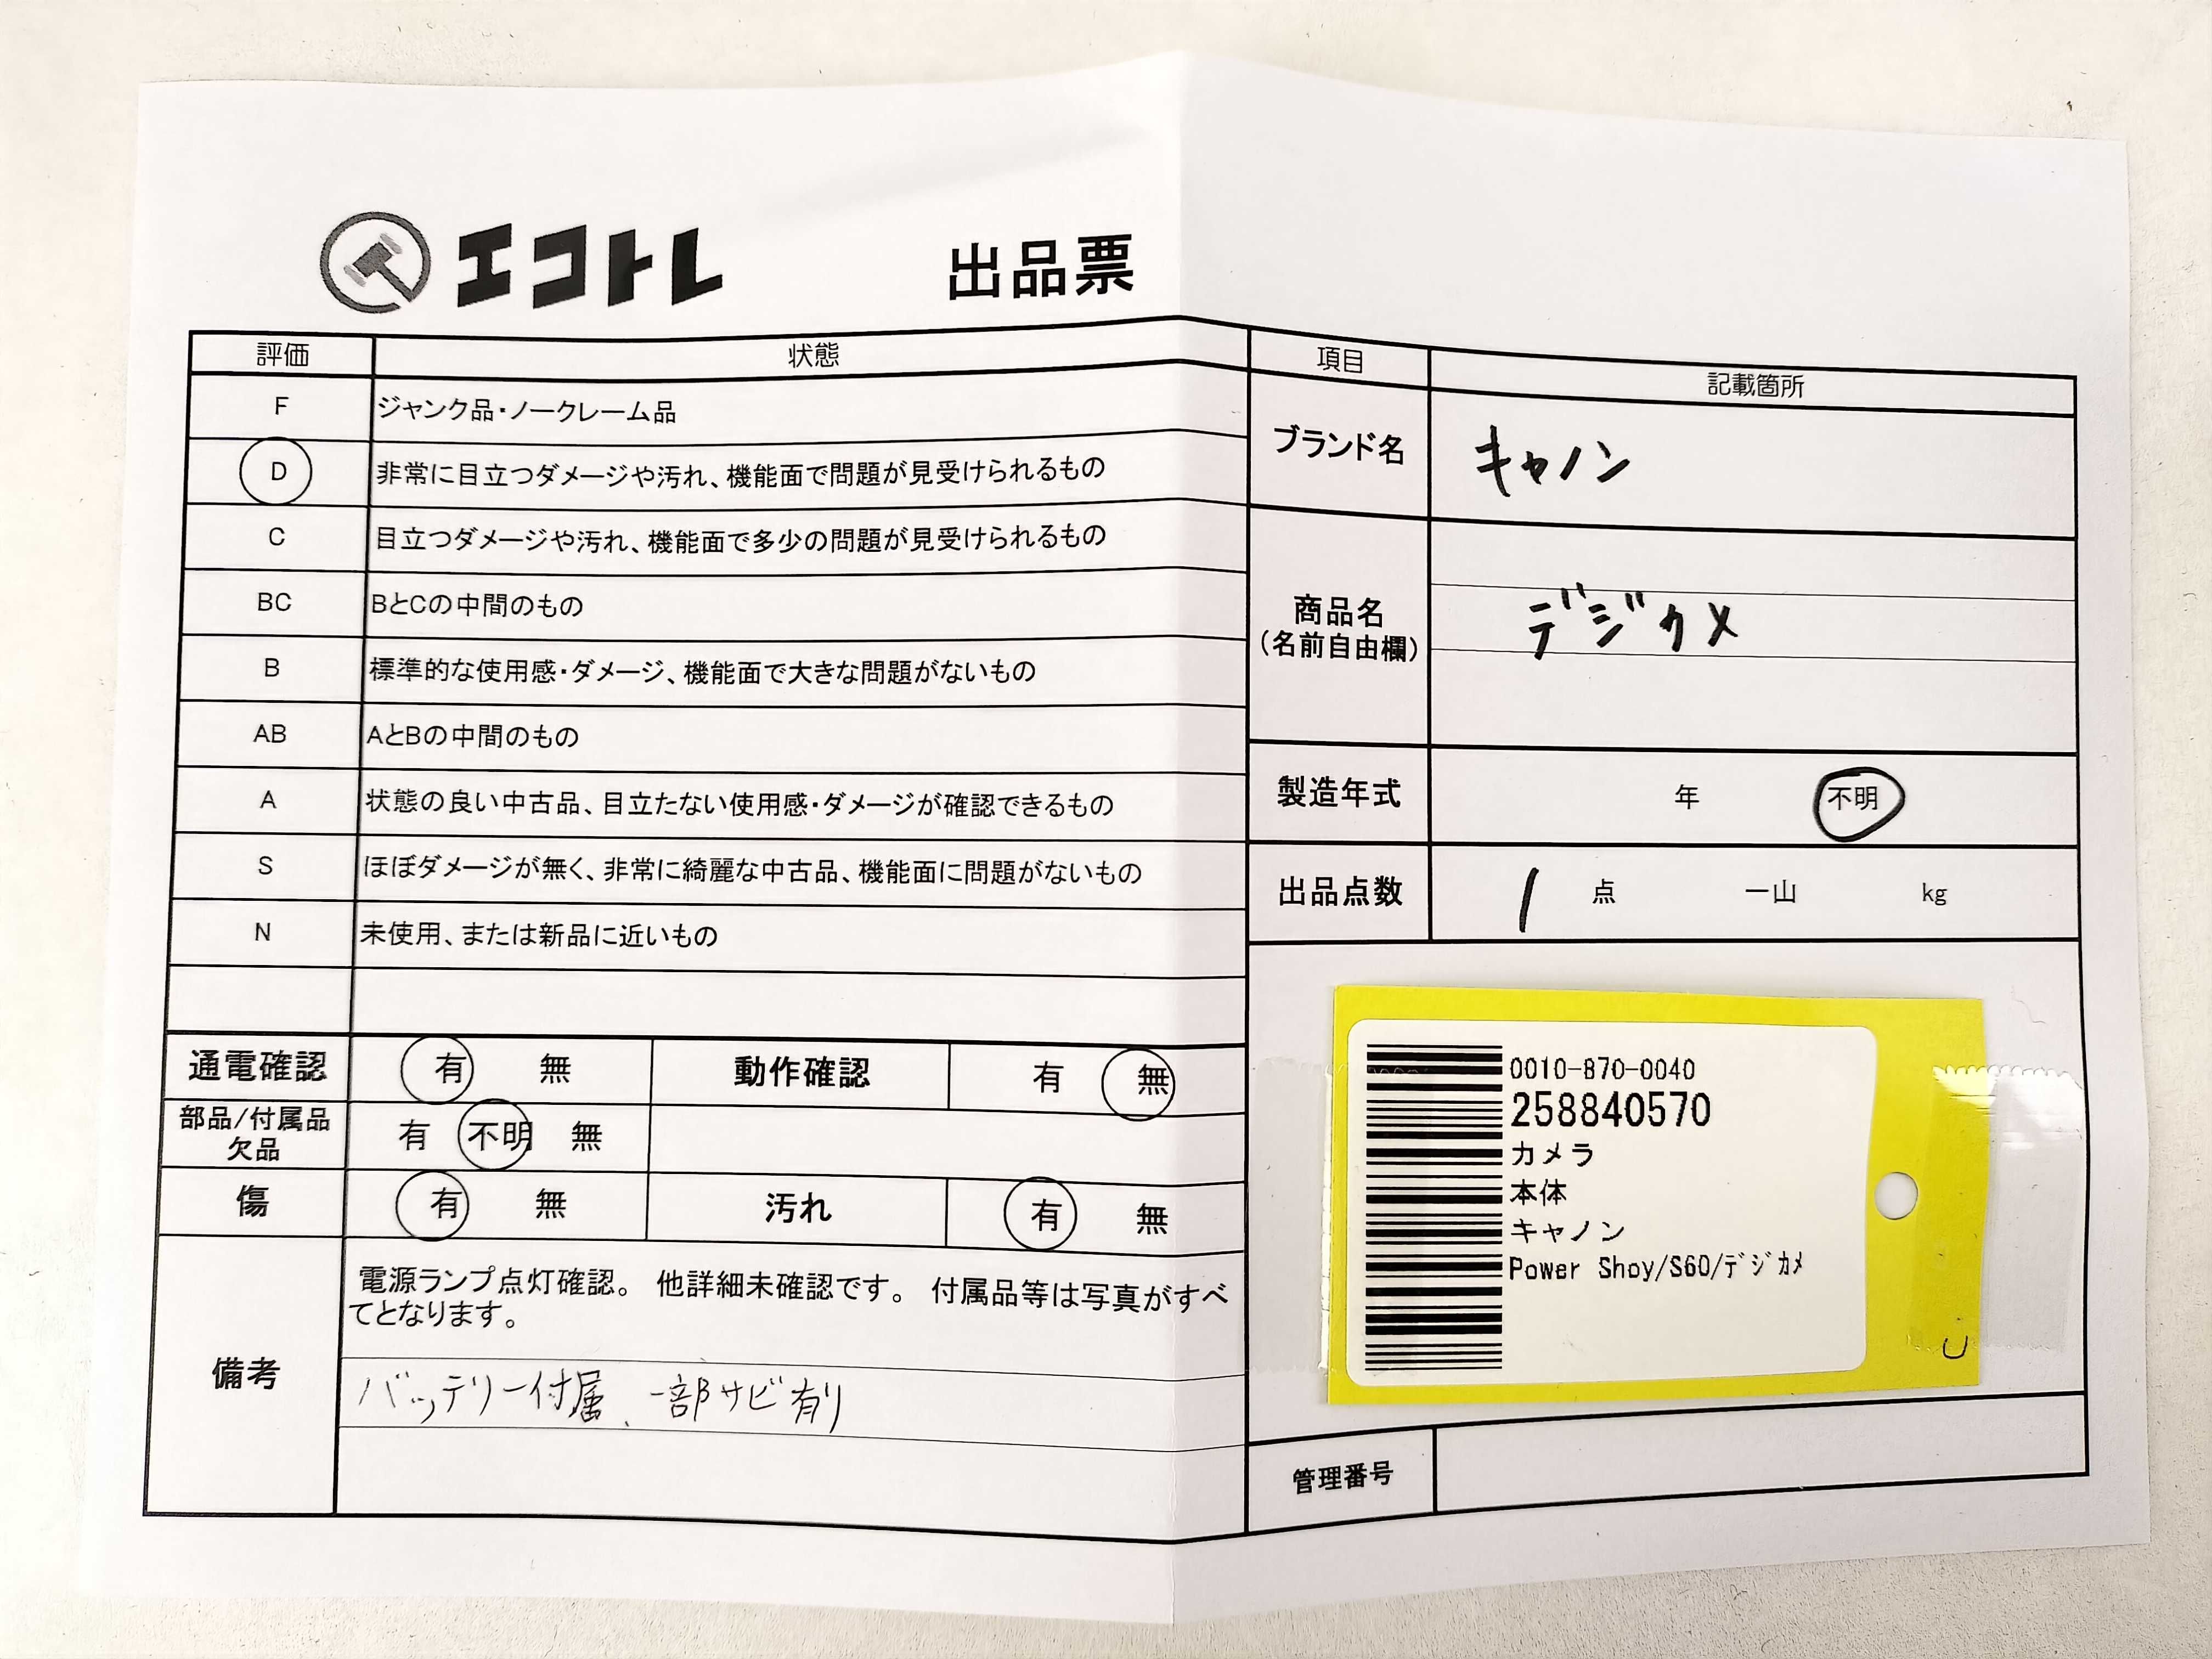 エコトレ 出品票
評価 状態
F ジャンク品・ノークレーム品
D 非常に目立つダメージや汚れ、機能面で問題が見受けられるもの
C 目立つダメージや汚れ、機能面で多少の問題が見受けられるもの
BC BとCの中間のもの
B 標準的な使用感・ダメージ、機能面で大きな問題がないもの
AB AとBの中間のもの
A 状態の良い中古品、目立たない使用感・ダメージが確認できるもの
S ほぼダメージが無く、非常に綺麗な中古品、機能面に問題がないもの
N 未使用、または新品に近いもの
通電確認 有 無 動作確認 有 無
部品/付属品
欠品
有 不明 無
傷 有 無 汚れ 有 無
備考
電源ランプ点灯確認。 他詳細未確認です。 付属品等は写真がすべ
てとなります。
バッテリー付属、一部サビ有り
項目 記載箇所
ブランド名 キャノン
商品名
(名前自由欄)
デジカメ
製造年式 年 不明
出品点数 1 点 一山 kg
0010-870-0040
258840570
カメラ
本体
キャノン
Power Shoy/S60/デジカメ
管理番号